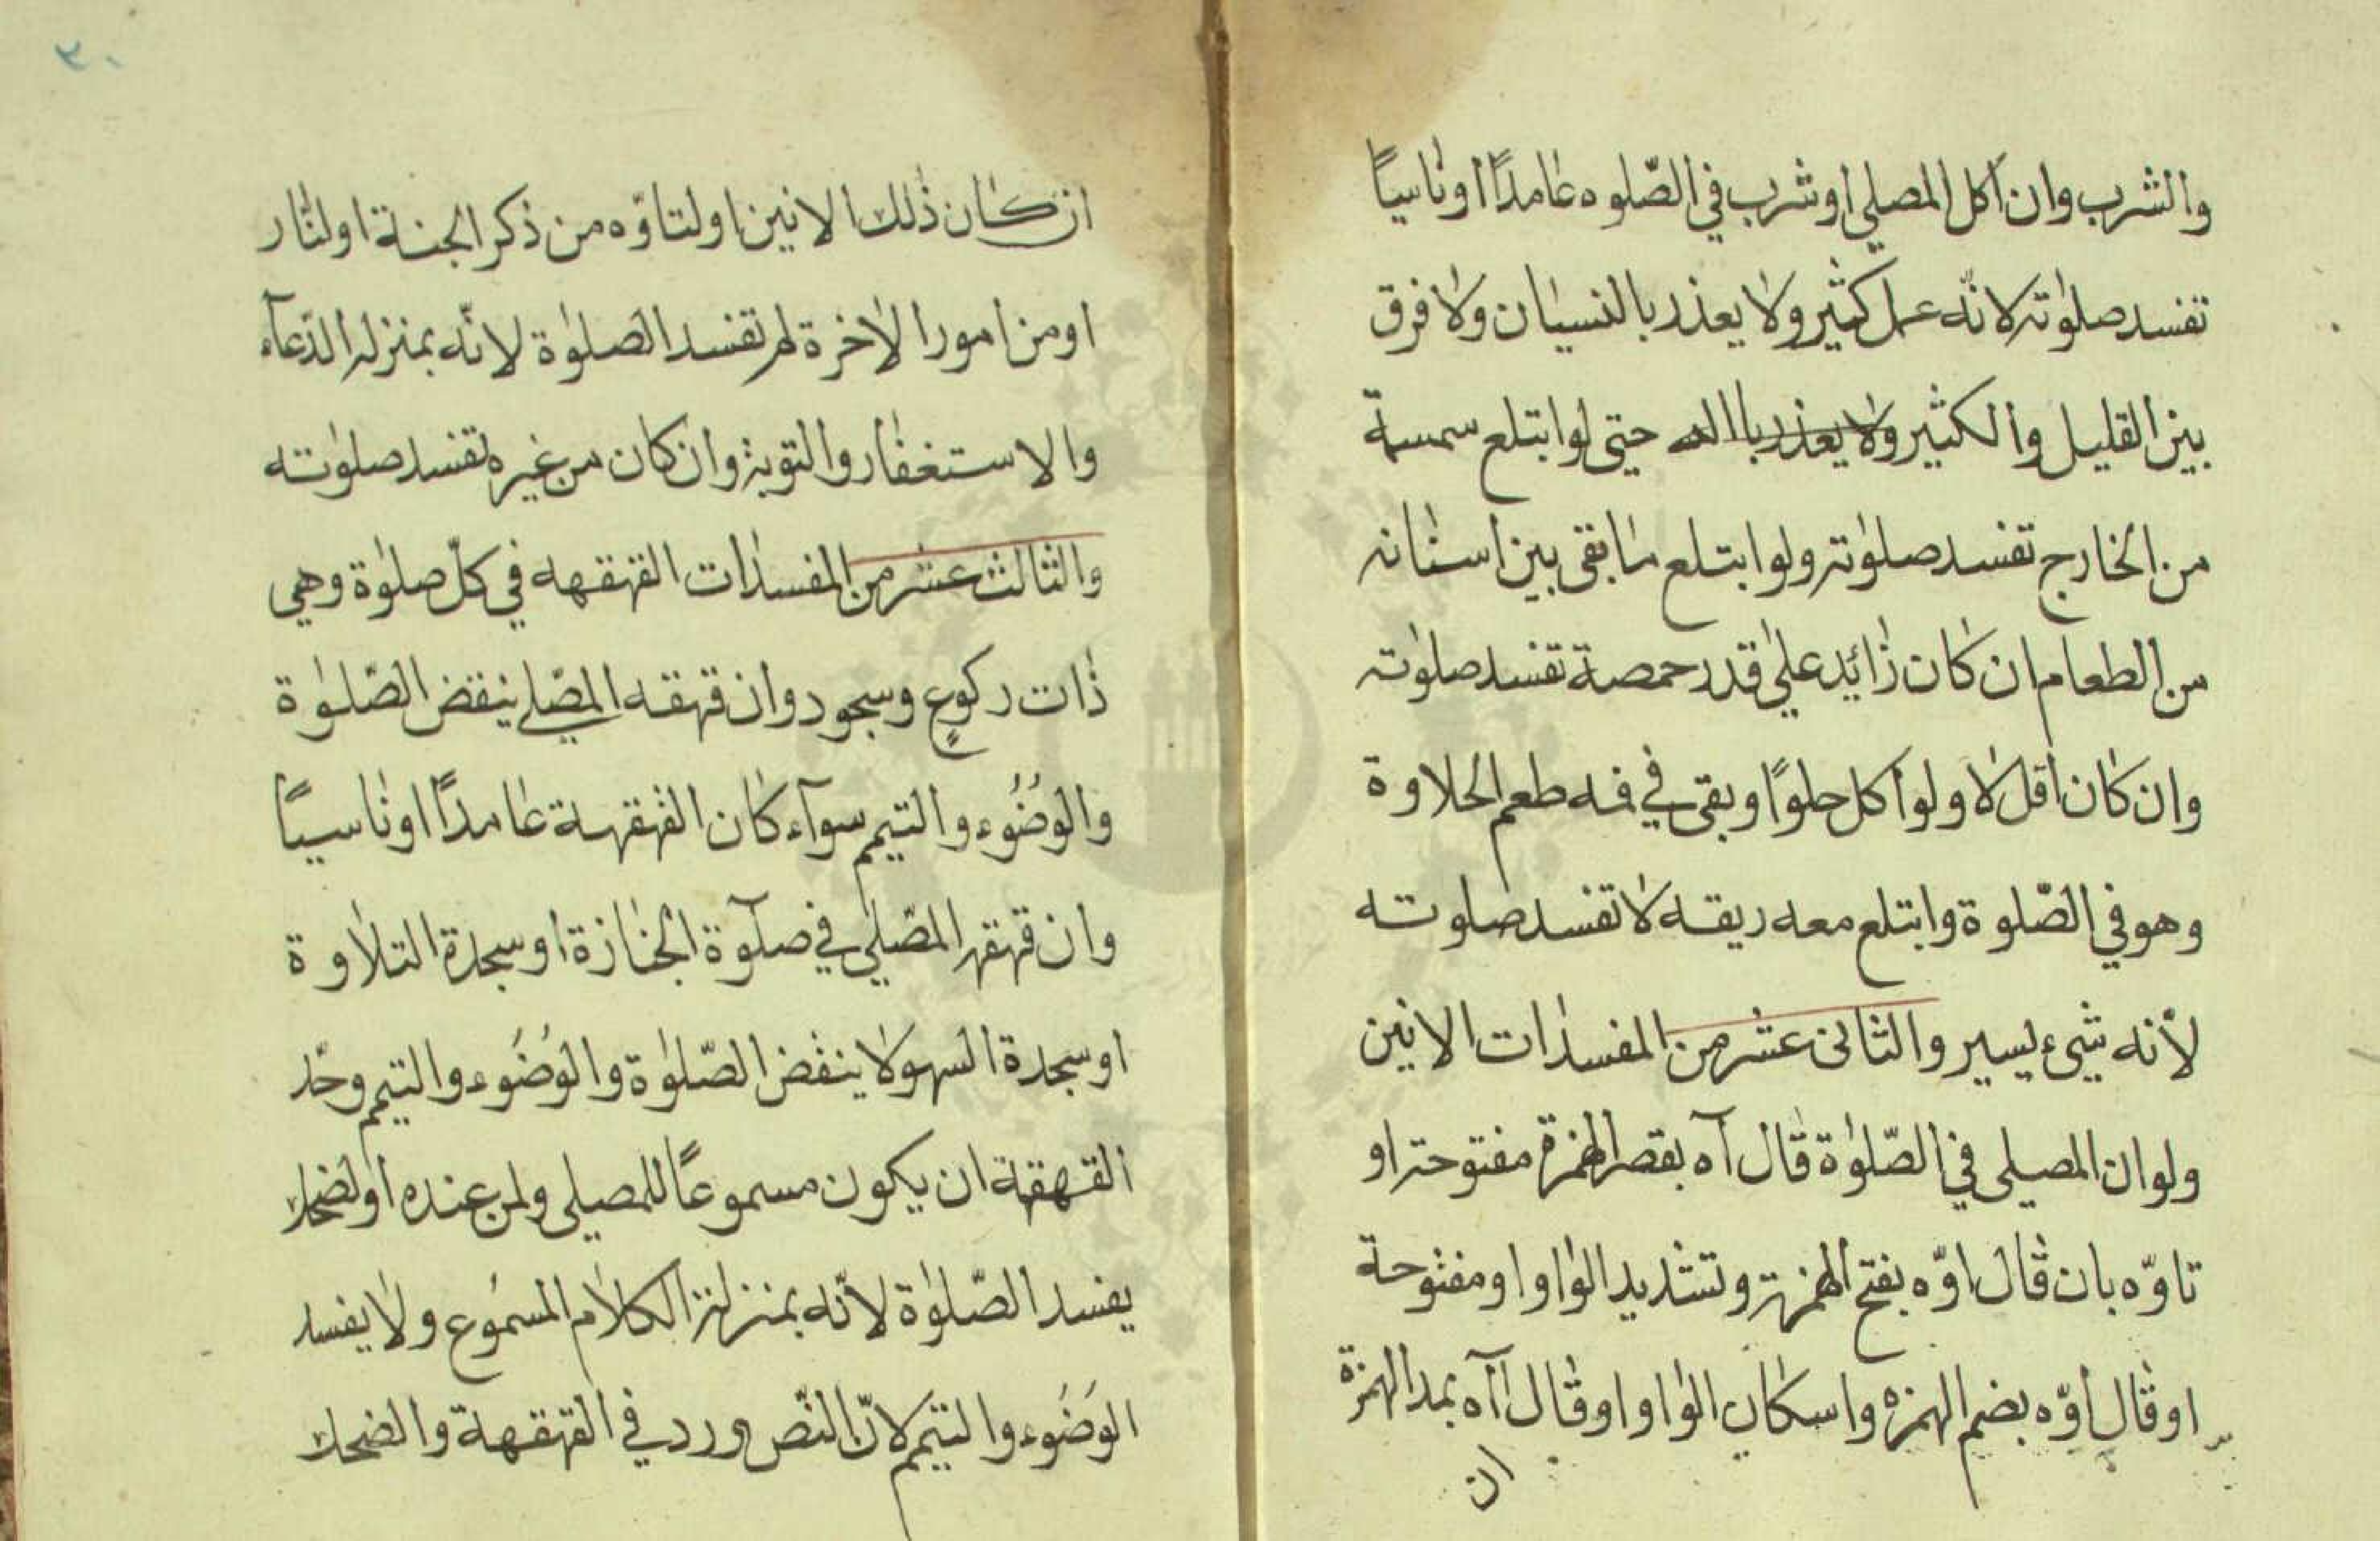 والشرب وان اكل المصلى اوشرب في الصّلوه عامدًا اوناسيًا
تفسد صلوته لانّه عمل كثير ولا يعذر بالنسيان ولا فرق
بين القليل والكثير ولا يعذر باالله حيتى لوابتلع سمسمة
من الخارج تفسد صلوته ولو ابتلع ما بقى بين اسنانه
من الطعام ان كان زائد على قدر حمصة تفسد صلوته
وان كان اقل لا ولو اكل حلوًا وبقى في فمه طعم الحلاوة
وهو في الصّلوة وابتلع معه ريقه لا تفسد صلوته
لأنه شيء يسير والثانى عشر من المفسدات الانين
ولو ان المصلى في الصّلوة قال آه بقصر الهمزة مفتوحة او
تاوّه بان قال اوّه بفتح الهمزة وتشديد الواو او مفتوحة
او قال اوّه بضم الهمزه واسكان الواو او قال اآه بمد الهمزة
ان
٣٠
ان كان ذلك الانين اولتاوّه من ذكر الجنة اولنار
او من امور الاخرة لم تفسد الصلوة لانّه بمنزله الدّعآء
والاستغفار والتوبة وان كان من غيره تفسد صلوته
والثالث عشر من المفسدات القهقهه في كلّ صلوة وهي
ذات ركوعٍ وسجود وان قهقه المصّلي ينقض الصّلوة
والوُضُوء والتيمم سوآء كان القهقهة عامدًا اوناسيًا
وان قهقه المصّلي في صلآوة الجنازة او سجدة التلاوة
او سجدة السهو لا ينقض الصّلوة والوُضُوء والتيمم وحّد
القهقهة ان يكون مسموعًا للمصلى ولمن عنده اولضحك
يفسد الصّلوة لانّه بمنزلة الكلام المسمُوع ولا يفسد
الوضُوء والتيمم لانّ النّص ورد في القهقهة والضحك